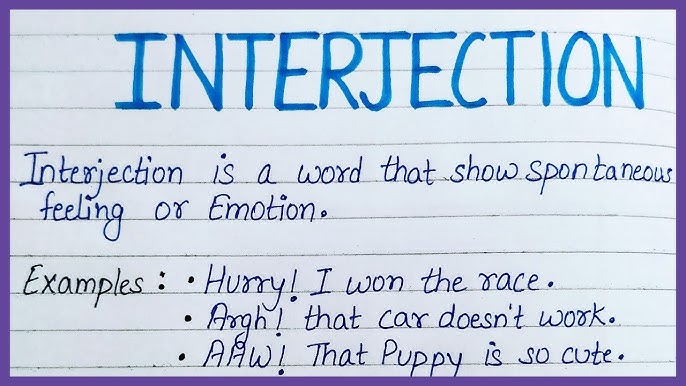 INTERJECTION
Interjection is a word that show spontaneous
feeling or Emotion.
Examples : • Hurry! I won the race.
• Argh! that car doesn't work.
• AAW! That Puppy is so cute.